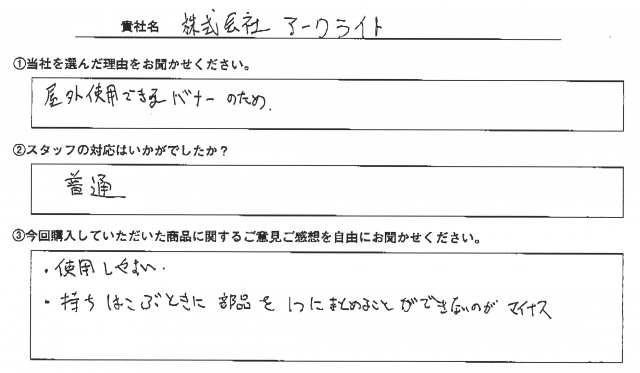 貴社名 株式会社 アークライト
①当社を選んだ理由をお聞かせください。
屋外使用できるバナーのため.
②スタッフの対応はいかがでしたか？
普通
③今回購入していただいた商品に関するご意見ご感想を自由にお聞かせください。
・使用しやすい.
・持ちはこぶときに部品を1つにまとめることができないのがマイナス